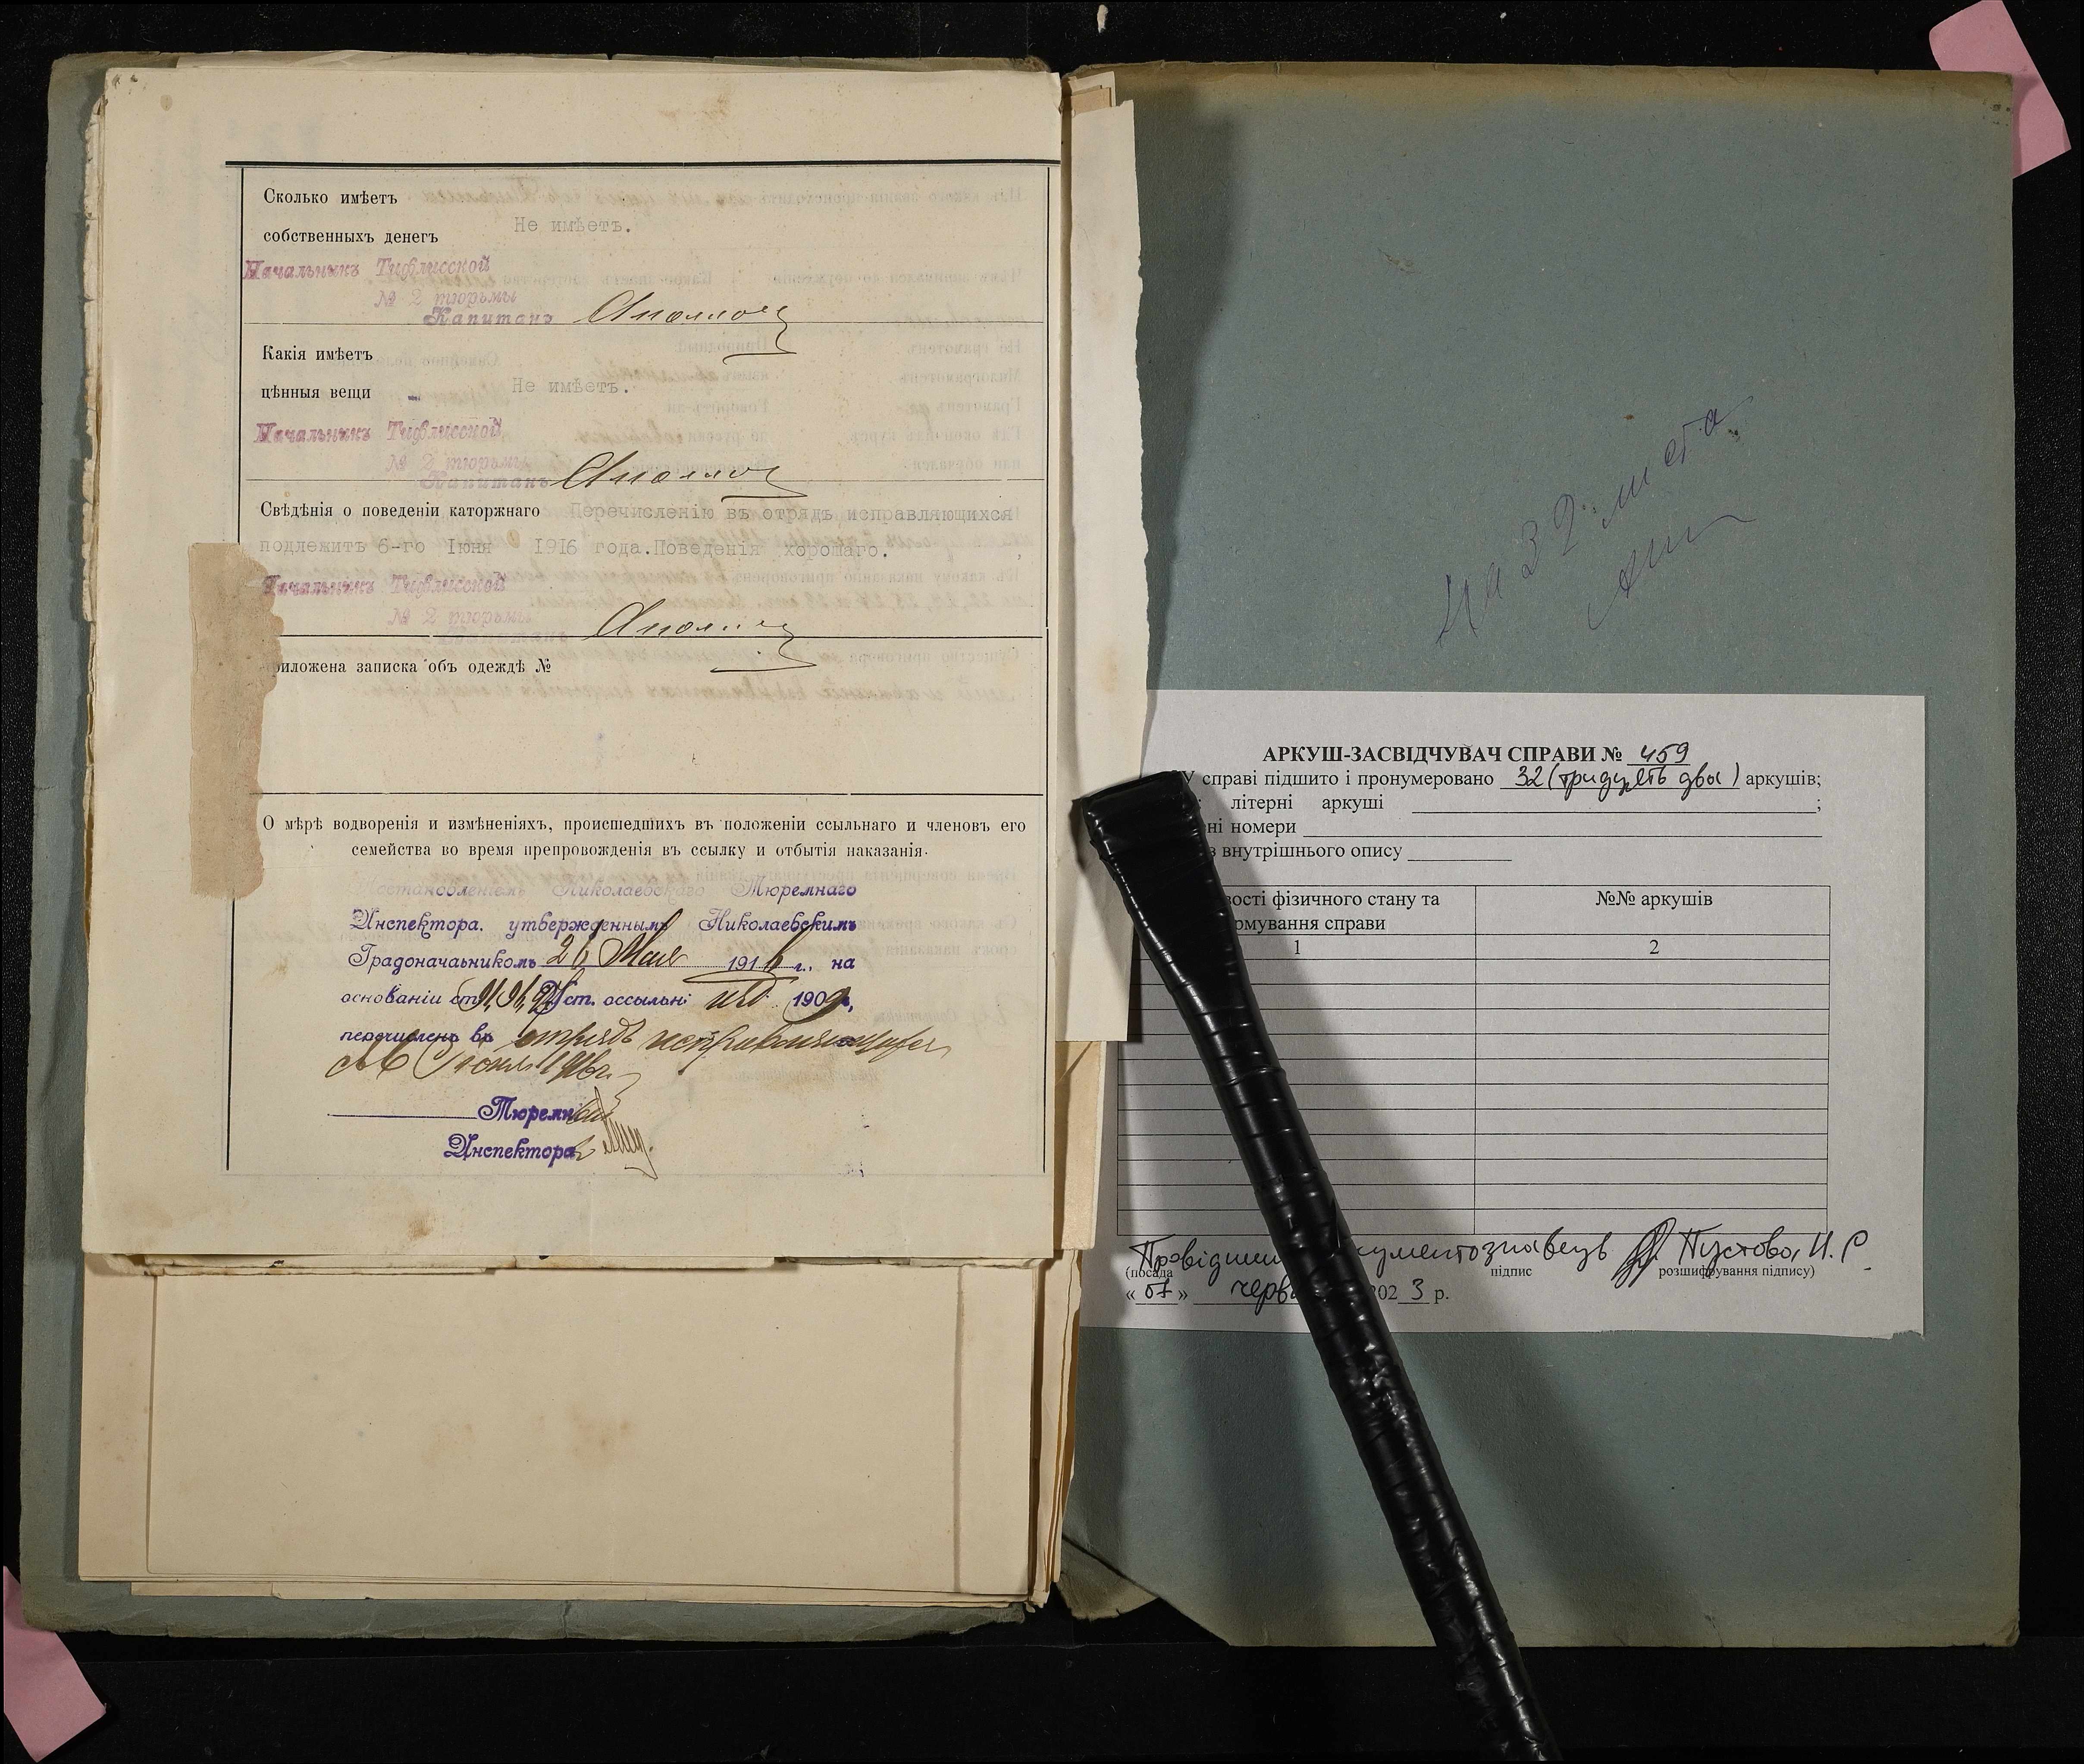 Сколько имѣетъ
собственныхъ денегъ
Не имѣетъ.
Начальникъ Тифлисской
№ 2 тюрьмы
Капитанъ
Какія имѣетъ
цѣнныя вещи
Не имѣетъ.
Начальникъ Тифлисской
№ 2 тюрьмы
Капитанъ
Свѣдѣнія о поведеніи каторжнаго Перечисленію въ отрядъ исправляющихся
подлежитъ 6-го Іюня 1916 года.Поведенія хорошаго.
Начальникъ Тифлисской
№ 2 тюрьмы
Капитанъ
риложена записка объ одеждѣ №
О мѣрѣ водворенія и измѣненіяхъ, происшедшихъ въ положеніи ссыльнаго и членовъ его
семейства во время препровожденія въ ссылку и отбытія наказанія.
Постановленіемъ Николаевскаго Тюремнаго
Инспектора, утвержденнымъ Николаевскимъ
Градоначаьникомъ 26 Мая 1916 г., на
основаніи ст. Уст. оссыльн: изд. 1909 г.,
перечисленъ въ отрядъ исправляющихся
съ 6 Іюня 1916 г.
Тюремный
Инспекторъ
На 32 листа
АРКУШ-ЗАСВІДЧУВАЧ СПРАВИ № 459
У справі підшито і пронумеровано 32 (тридцять два) аркушів;
літерні аркуші ;
ні номери
з внутрішнього опису
вості фізичного стану та
рмування справи
№№ аркушів
1
2
Провідний кументознавець Пустова І. Р
(посада підпис розшифрування підпису)
« 07 » черв 202 3 р.